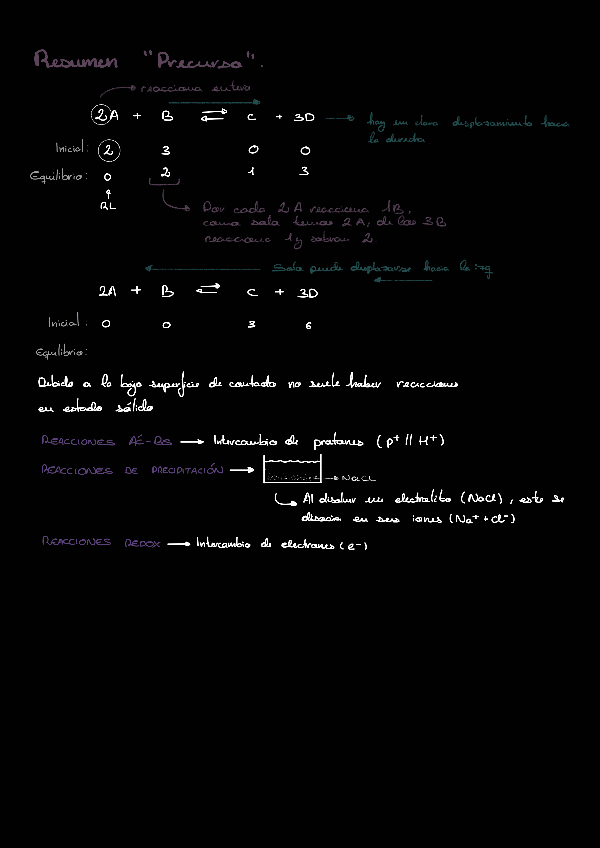 Resumen "Precurso".
reacciona entero
2A + B ⇌ C + 3D → hay un claro desplazamiento hacia la derecha
Inicial: 2 3 0 0
Equilibrio: 0 2 1 3
↑
RL
Por cada 2A reacciona 1B,
como solo tenemos 2A, de los 3B
reacciona 1 y sobran 2
Solo puede desplazarse hacia la izq
2A + B ⇌ C + 3D
Inicial: 0 0 3 6
Equilibrio:
Debido a la baja superficie de contacto no suele haber reacciones
en estado sólido
REACCIONES ÁC-BS → Intercambio de protones (p+ // H+)
REACCIONES DE PRECIPITACIÓN → → NaCl
Al disolver un electrolito (NaCl), este se
disocia en sus iones (Na+ + Cl-)
REACCIONES REDOX → Intercambio de electrones (e-)